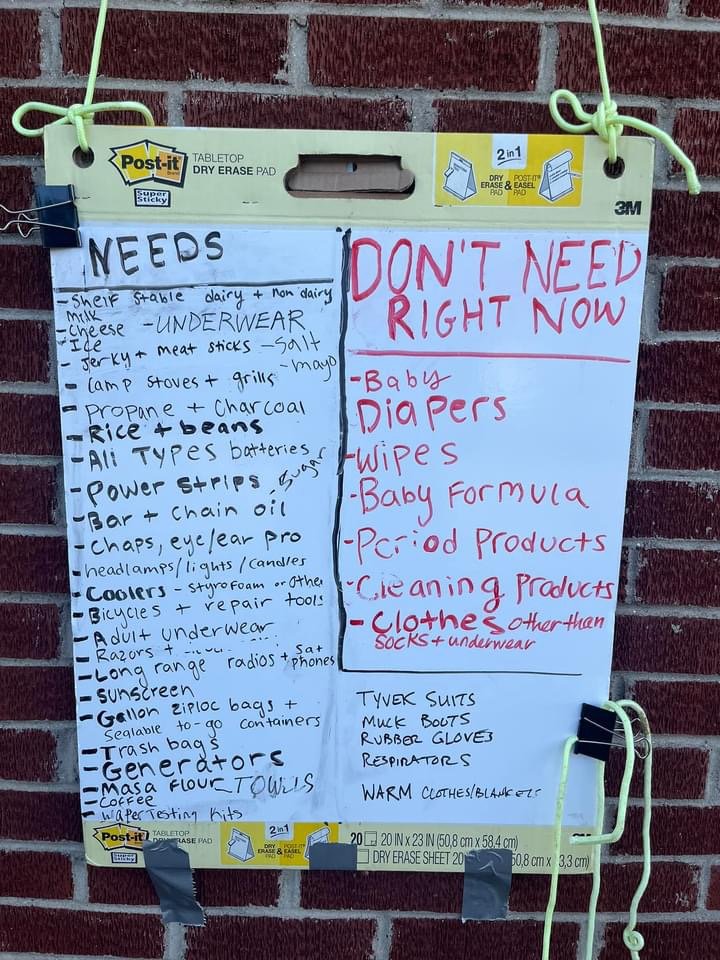 Post-it
Brand
Super
Sticky
TABLETOP
DRY ERASE PAD
2 in 1
DRY
ERASE
PAD
&
POST-IT®
EASEL
PAD
3M
NEEDS
- Shelf stable dairy + non dairy
milk
- Cheese - UNDERWEAR
- Ice
- Jerky + meat sticks - salt
- mayo
- Camp stoves + grills
- Propane + Charcoal
- Rice + beans
- All TYPES batteries
- Power strips, sugar
- Bar + Chain oil
- Chaps, eye/ear pro
- headlamps/lights/candles
- Coolers - styrofoam or other
- Bicycles + repair tools
- Adult underwear
- Razors +
- Long range radios + sat phones
- sunscreen
- Gallon ziploc bags +
Sealable to-go containers
- Trash bags
- Generators
- Masa flour TOWELS
- Coffee
- Water Testing Kits
DON'T NEED
RIGHT NOW
- Baby
Diapers
- Wipes
- Baby Formula
- Period Products
- Cleaning Products
- Clothes other than
socks + underwear
TYVEK SUITS
MUCK BOOTS
RUBBER GLOVES
RESPIRATORS
WARM CLOTHES/BLANKETS
Post-it
Super
Sticky
TABLETOP
DRY ERASE PAD
2 in 1
DRY
ERASE
PAD
&
POST-IT®
EASEL
PAD
20 20 IN x 23 IN (50,8 cm x 58,4 cm)
DRY ERASE SHEET 20 50,8 cm x 3,3 cm)